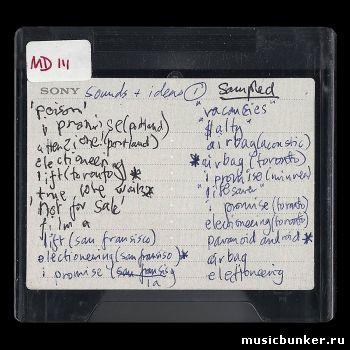 MD 111
SONY
Sounds + ideas ① Sampled
'poison'
i promise (portland)
attenzione! (portland)
electioneering
lift (toronto) *
true love waits *
'not for sale'
lift (san fransisco)
electioneering (san fransisco) *
i promise (san fransis
la
"vacancies"
airbag (acoustic)
* airbag (toronto)
i promise
"lifesaver"
i promise (toronto)
electioneering (toronto)
paranoid android *
airbag
electioneering
musicbunker.ru